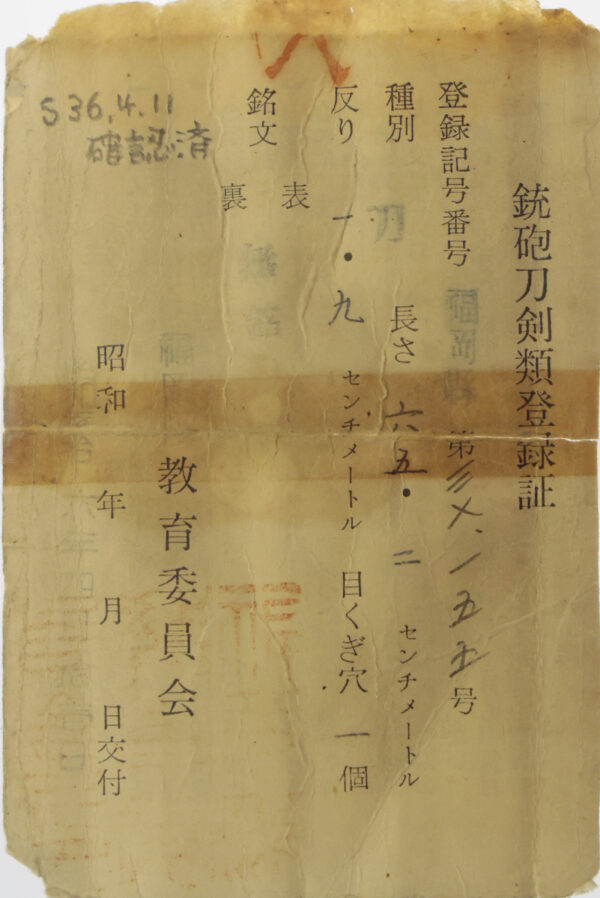 銃砲刀剣類登録証
登録記号番号 福岡県 第 五五 号
種別 刀 長さ 六五・二 センチメートル
反り 一・九 センチメートル 目くぎ穴 一個
銘文 表
裏
福岡 教育委員会
昭和 年 月 日交付
S36.4.11
確認済